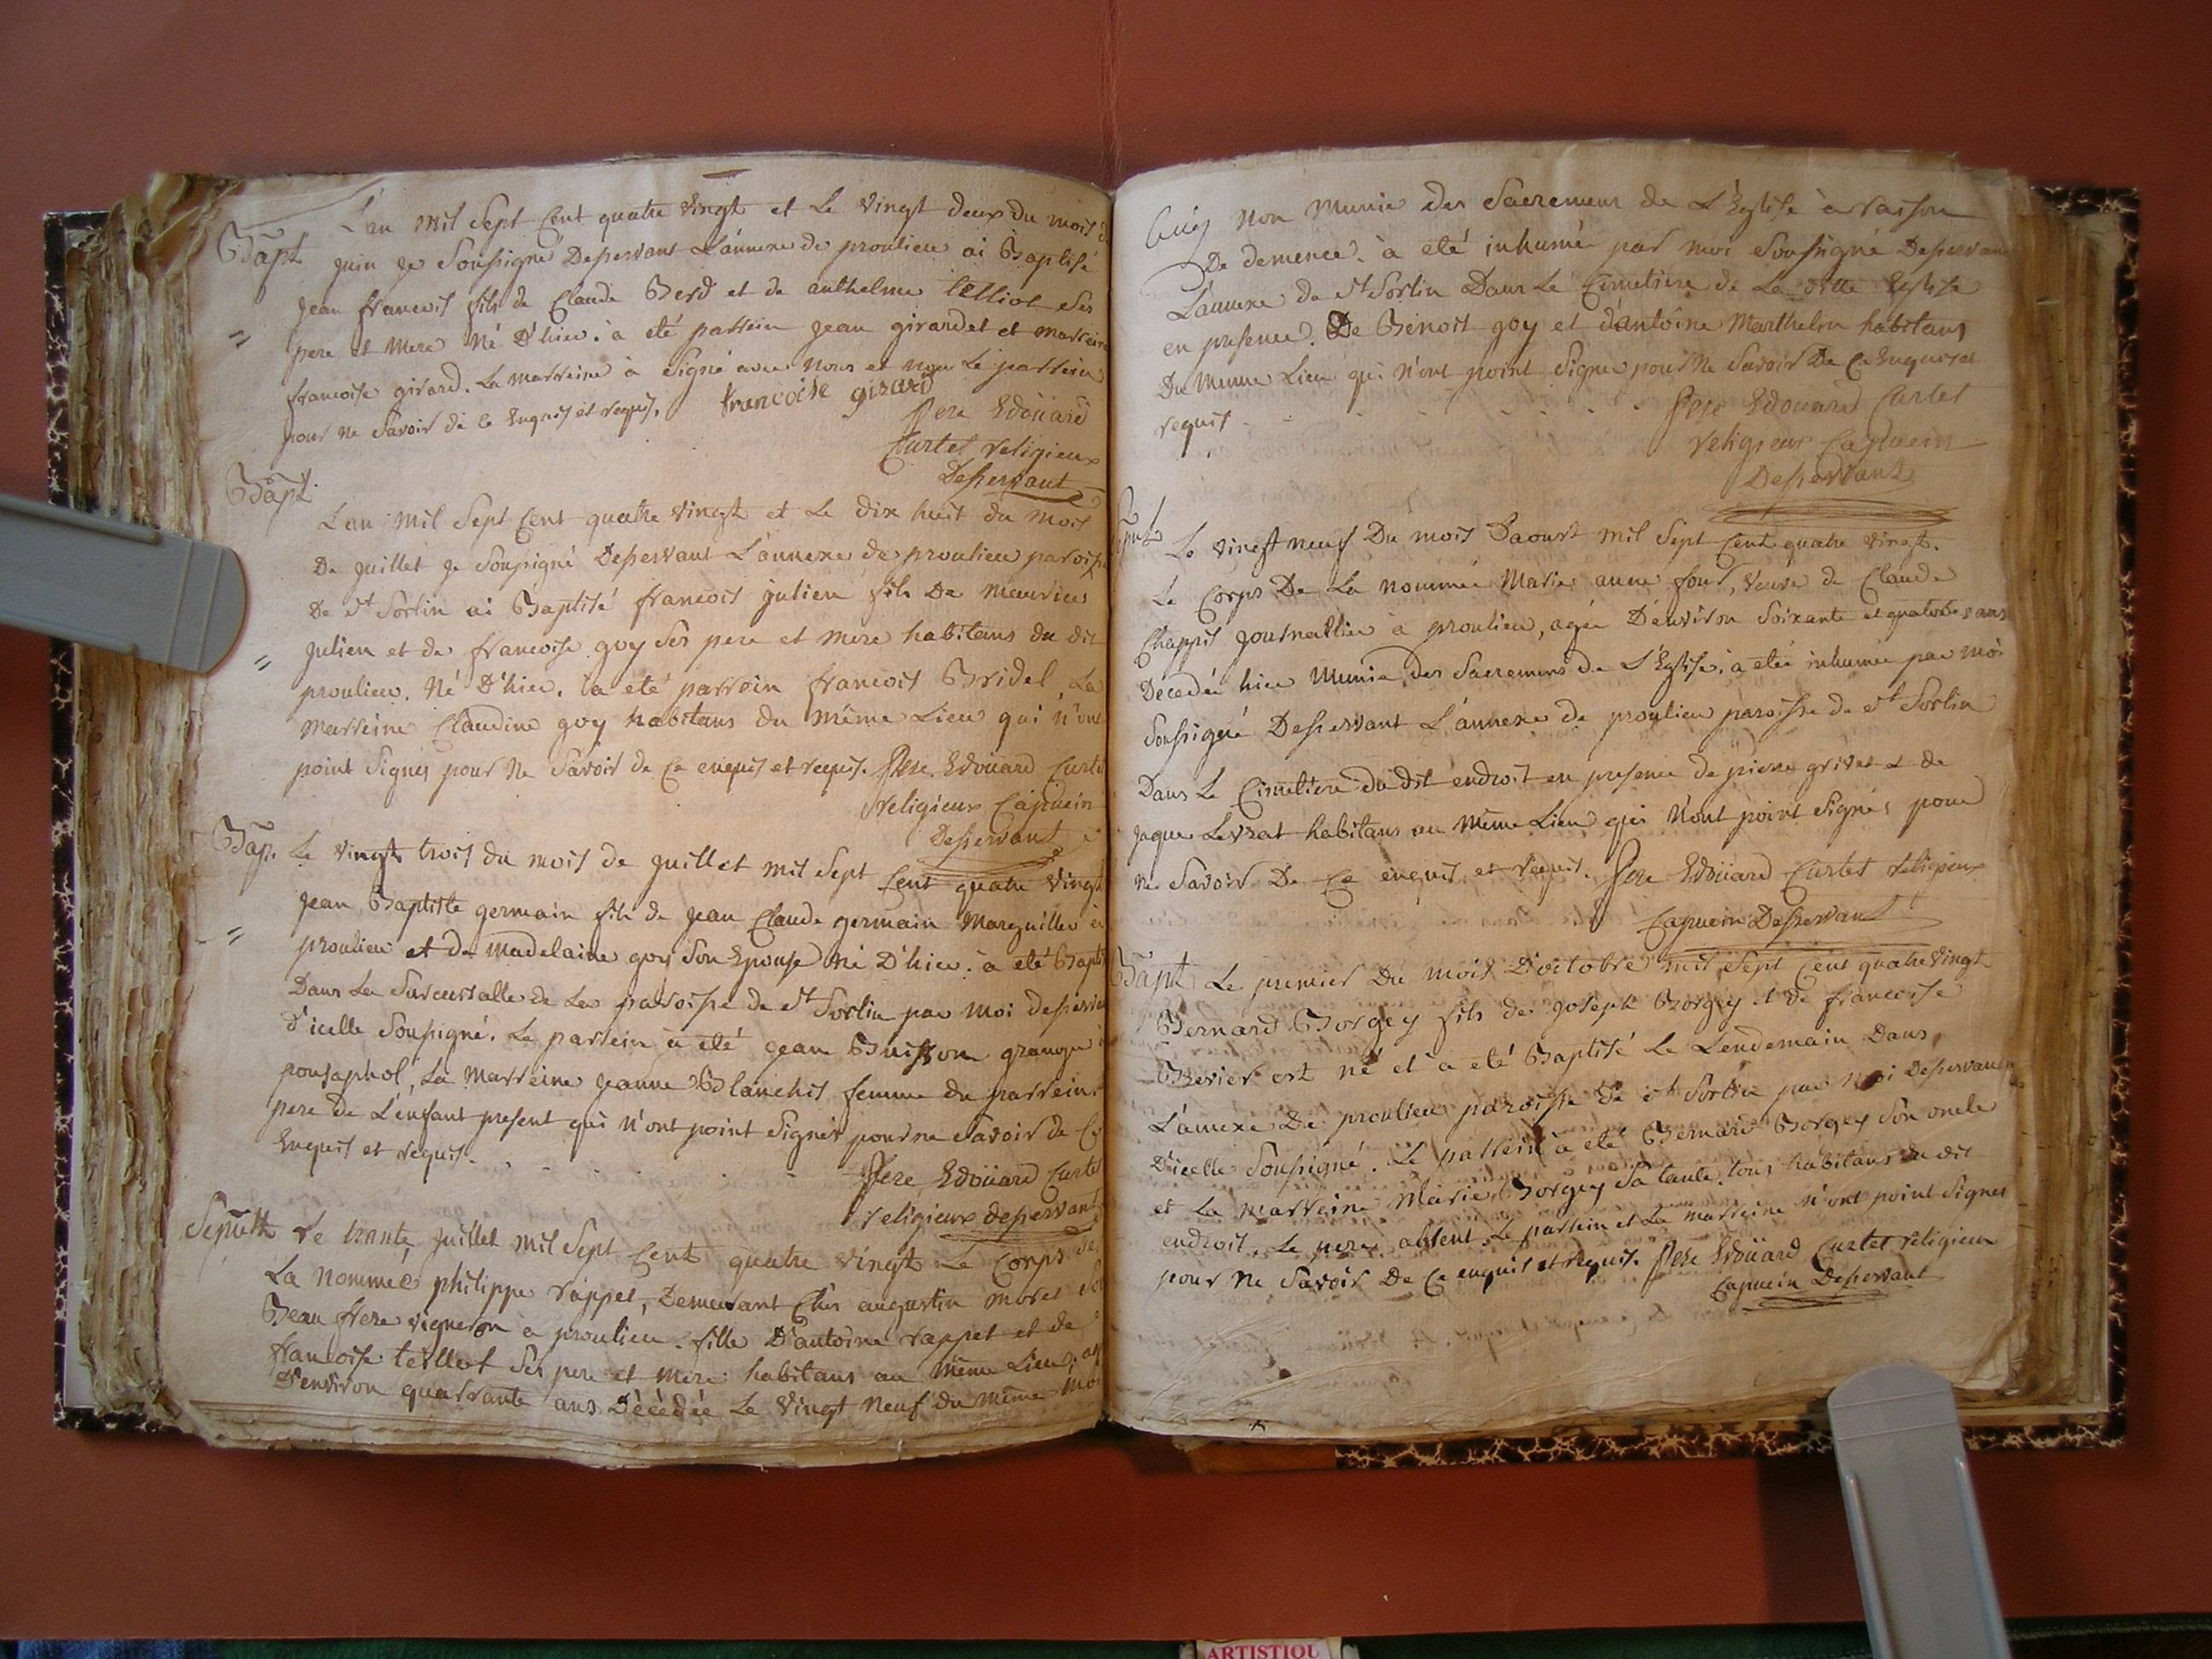 L'an mil Sept Cent quatre vingt et Le vingt deux du mois de
Bapt juin je Soussigné Desservant L'annexe de proulieu ai Baptisé
jean francois fils de Claude Berd et de anthelme telliot ses
pere et mere né D'hier. à eté parrein jean girardet et marreine
francoise girard. La marreine à Signé avec nous et non Le parrein
pour ne Savoir de ce enquis et requis. francoise girard
Pere Edoüard
Curtet religieux
Desservant
Bapt.
L'an mil Sept Cent quatre vingt et Le dix huit du mois
De juillet je Soussigné Desservant L'annexe de proulieu paroisse
De St Sorlin ai Baptisé francois julien fils De meurice
julien et de francoise goy Ses pere et mere habitans du dit
proulieu. Né D'hier. à eté parrein francois Bridel, La
marreine Claudine goy habitans du même Lieu qui n'ont
point Signés pour ne Savoir de Ce enquis et requis. Pere Edoüard Curtet
religieux Capucin
Desservant
Bap. Le vingt trois du mois de juillet mil Sept Cent quatre vingt
jean Baptiste germain fils de jean Claude germain Marguiller à
proulieu et de madelaine goy Son Epouse né D'hier. à eté Bapti
Dans La Succursalle de La paroisse de St Sorlin par moi desserv
d'icelle Soussigné. Le parrein à eté jean Buisson granger à
La Marreine jeanne Blanchit femme du parrein.
pere de L'enfant present qui n'ont point Signés pour ne Savoir de Ce
Enquis et requis.
Pere Edoüard Curtet
religieux desservant
Sepult. Le trante juillet mil Sept Cent quatre vingt Le Corps de
La Nommée philippe rappet, Demeurant Chés augustin moret Son
Beau frere vigneron à proulieu. fille D'antoine rappet et de
francoise teillot Ses pere et mere habitans au même Lieu; agée
D'environ quarrante ans Dècèdèe Le vingt neuf du même mois
Non Munie des Sacremens de L'Eglise à raison
De demence. à eté inhumée par moi Soussigné Desservant
L'annexe de St Sorlin Dans Le Cimetiere de La ditte Eglise
en presence De Benoit goy et d'antoine Marthelin habitans
Du Même Lieu qui n'ont point Signé pour Ne Savoir De Ce Enquis et
requis
Pere Edoüard Curtet
religieux Capucin
Desservant
Le vingt neuf Du mois D'aoust mil Sept Cent quatre vingt.
Le Corps De La nommée Marie anne four, veuve de Claude
Chappit journallier à proulieu, agée D'environ Soixante et quatorze ans
Decedée hier Munie des Sacremens de L'Eglise. à eté inhumée par moi
Soussigné Desservant L'annexe de proulieu paroisse de St Sorlin
Dans Le Cimetiere du dit endroit en presence de pierre grivet et de
jaque Levrat habitans au Même Lieu qui N'ont point Signés pour
ne Savoir De Ce enquis et requis. Pere Edoüard Curtet religieux
Capucin Desservant
Bapt Le premier Du mois D'octobre mil Sept Cent quatre vingt
Bernard Borgey fils de joseph Borgey et de francoise
Bevier est né et à eté Baptisé Le Lendemain Dans
L'annexe De proulieu paroisse De St Sorlin par Moi Desservant
D'icelle Soussigné. Le parrein à eté Bernard Borgey Son oncle
et La marreine Marie Borgey Sa tante. tous habitans du dit
endroit. Le pere absent. Le parrein et La marreine n'ont point Signés
pour Ne Savoir De Ce enquis et requis. Pere Edoüard Curtet religieux
Capucin Desservant
ARTISTIQU